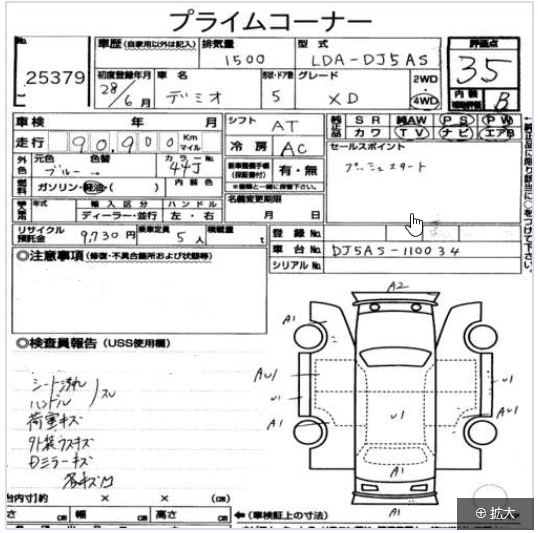 プライムコーナー
No. 25379
車歴 (自家用以外は記入) 排気量 1500 型式 LDA-DJ5AS 評価点 35
初度登録年月 28/6月 車名 デミオ 形状・ドア数 5 グレード XD 2WD・4WD 内装 B
車検 年 月
走行 90,900 Km マイル
シフト AT
冷房 AC
純正品 SR 純AW PS PW
カワ TV ナビ エアB
外色 元色 ブルー 色替 → カラーNo. 44J
燃料 ガソリン・軽油・( ) 内装色
新車整備手帳 (保証書付) 有・無
※書類と一緒に保管下さい。
セールスポイント
プッシュスタート
年式 輸入区分 ハンドル
ディーラー・並行 左・右
名義変更期限
月 日
リサイクル預託金 9,730円 乗車定員 5人 積載量 t
登録No.
車台No. DJ5AS-110034
シリアルNo.
◎注意事項 (修復・不具合箇所および状態等)
◎検査員報告 (USS使用欄)
シート汚れ
ハンドル スレ
荷室キズ
外装ウスキズ
Dミラーキズ
各キズ凹
A2
A1
AU1
U1
U1
U1
A1
AU1
A1
A1
台内寸)約 × × (cm)
さ cm 幅 cm 高さ cm
←(車検証上の寸法)
拡大